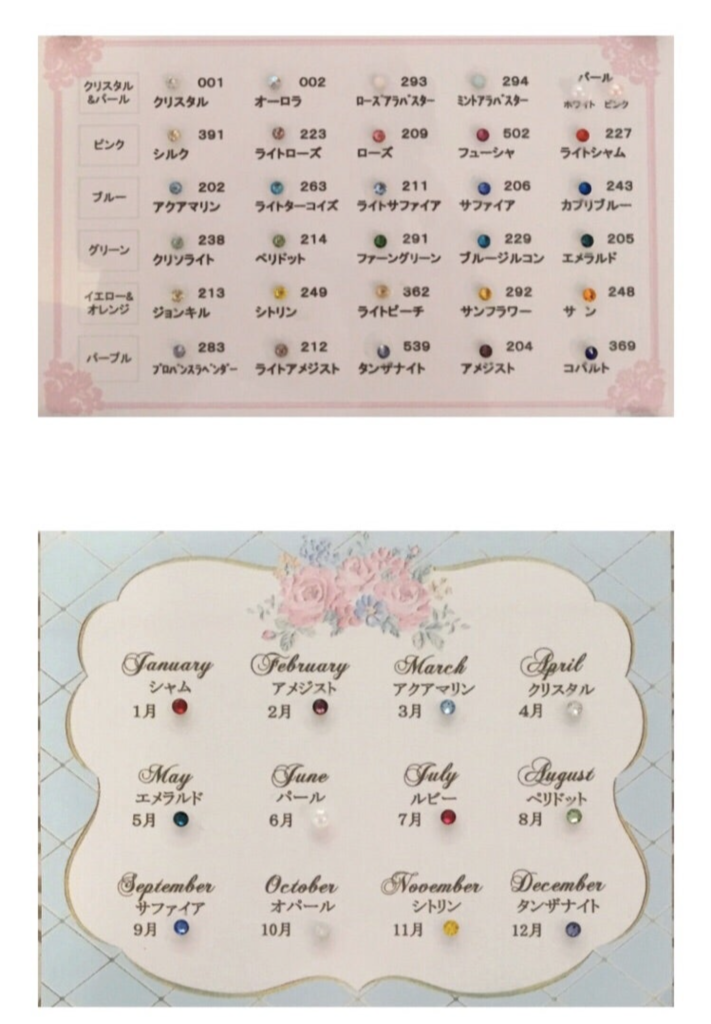 クリスタル
&パール
001
クリスタル
002
オーロラ
293
ローズアラバスター
294
ミントアラバスター
パール
ホワイト ピンク
ピンク
391
シルク
223
ライトローズ
209
ローズ
502
フューシャ
227
ライトシャム
ブルー
202
アクアマリン
263
ライトターコイズ
211
ライトサファイア
206
サファイア
243
カプリブルー
グリーン
238
クリソライト
214
ペリドット
291
ファーングリーン
229
ブルージルコン
205
エメラルド
イエロー&
オレンジ
213
ジョンキル
249
シトリン
362
ライトピーチ
292
サンフラワー
248
サン
パープル
283
プロバンスラベンダー
212
ライトアメジスト
539
タンザナイト
204
アメジスト
369
コバルト
January
シャム
1月
February
アメジスト
2月
March
アクアマリン
3月
April
クリスタル
4月
May
エメラルド
5月
June
パール
6月
July
ルビー
7月
August
ペリドット
8月
September
サファイア
9月
October
オパール
10月
November
シトリン
11月
December
タンザナイト
12月